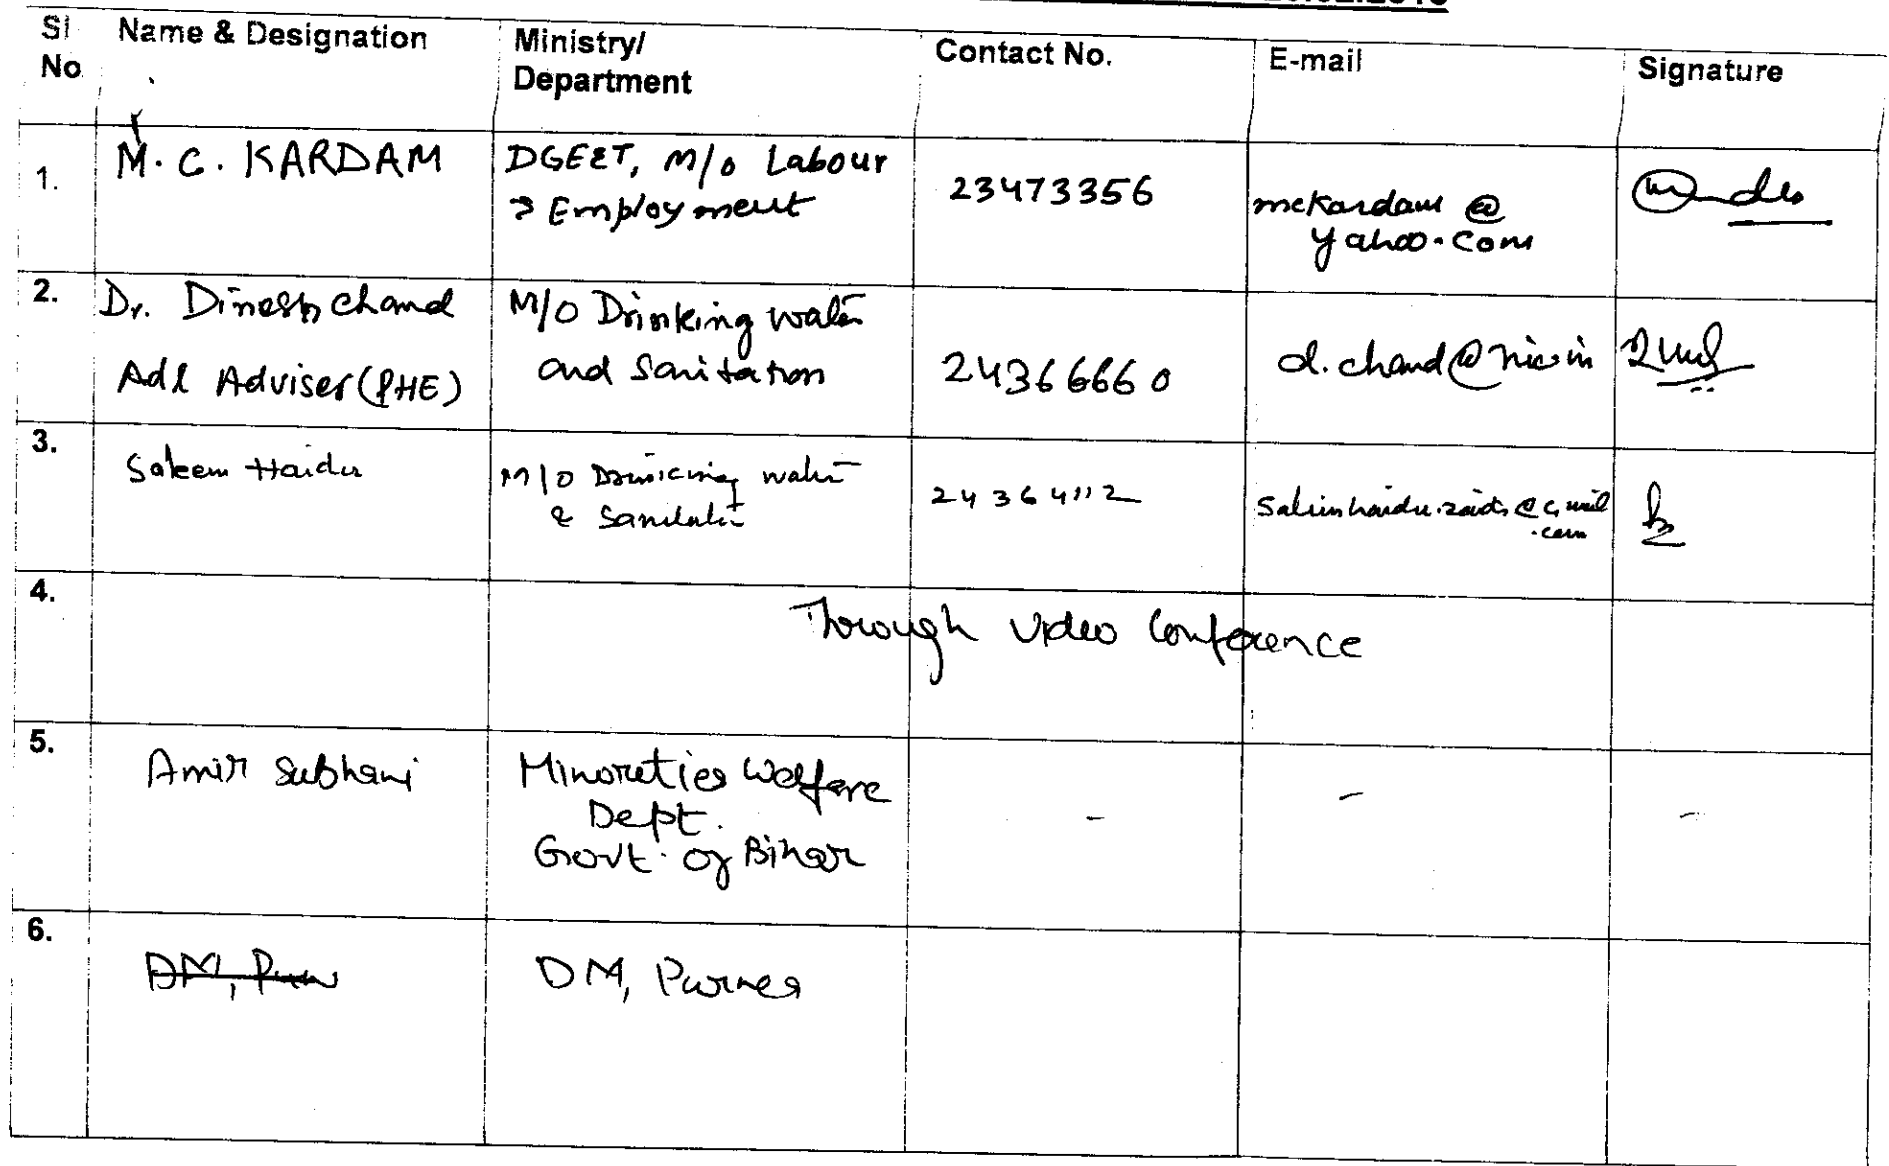 Sl No
Name & Designation
Ministry/
Department
Contact No.
E-mail
Signature
1.
M. C. KARDAM
DGE&T, M/o Labour
& Employment
23473356
mckardam @
yahoo.com
2.
Dr. Dinesh Chand
Adl Adviser (PHE)
M/O Drinking water
and Sanitation
24366660
d.chand@nic.in
3.
Saleem Haider
M/O Drinking water
& Sanitation
24364112
4.
Through Video Conference
5.
Amir Subhani
Minoreties Welfare
Dept.
Govt. of Bihar
-
-
-
6.
DM,
DM, Purnea